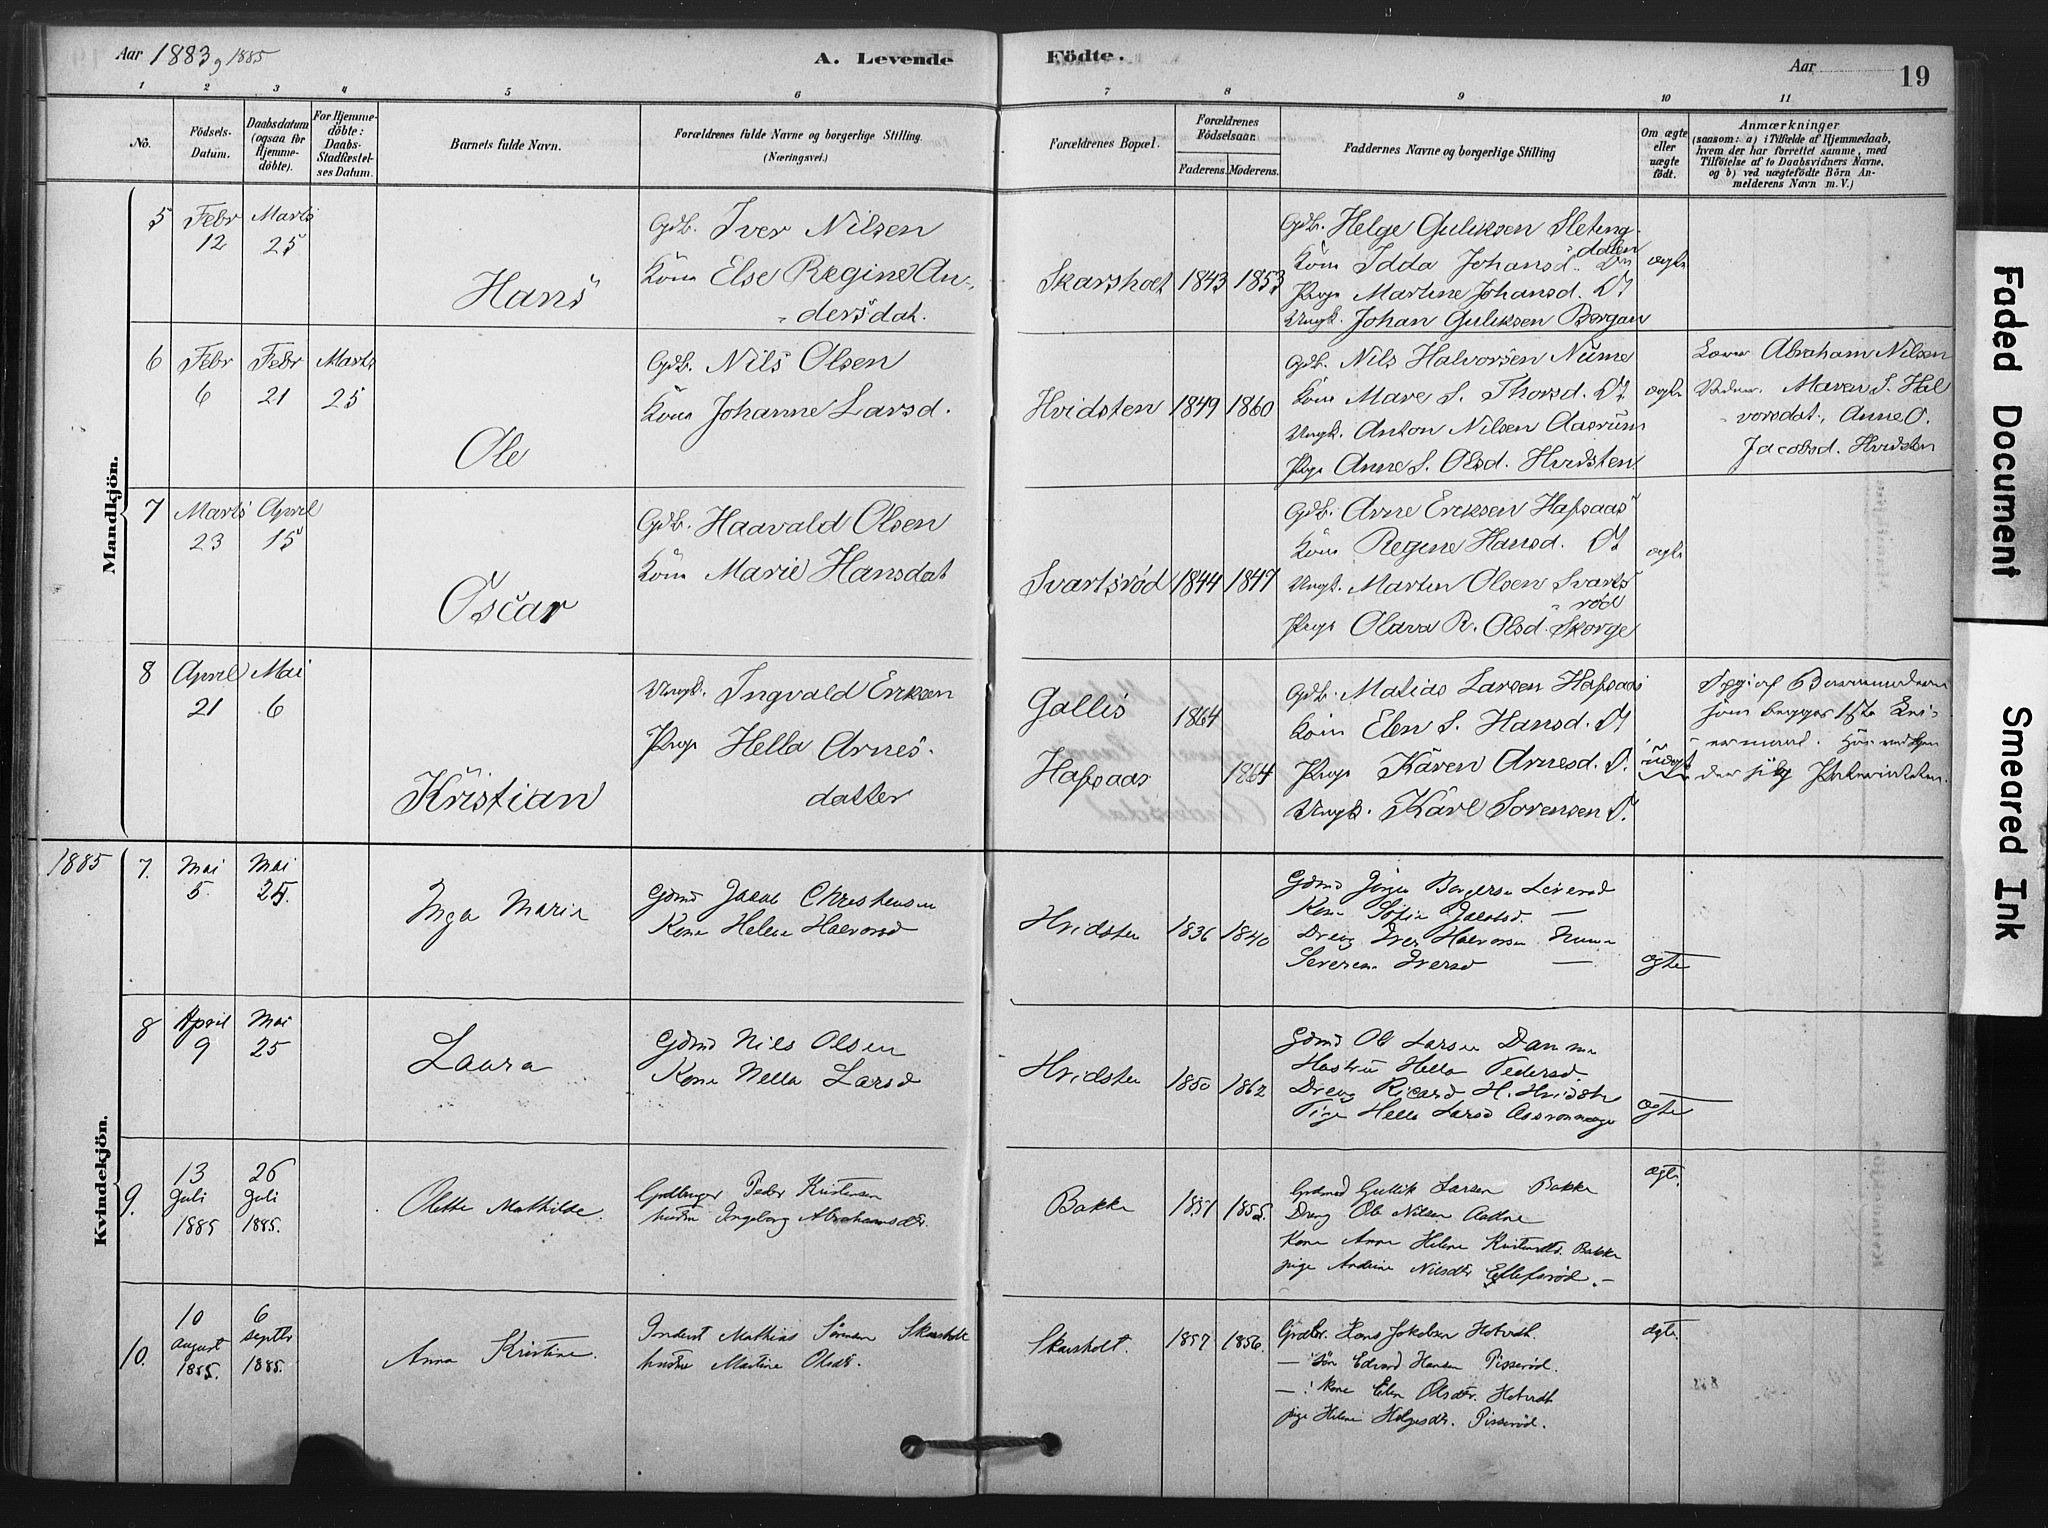 Aar 1883 og 1885
A. Levende Födte.
Aar
19
1 2 3 4 5 6 7 8 9 10 11
No.
Födsels-
Datum.
Daabsdatum
(ogsaa for
Hjemme-
döbte).
For Hjemme-
döbte:
Daabs-
Stadfæstel-
ses Datum.
Barnets fulde Navn.
Forældrenes fulde Navne og borgerlige Stilling.
(Næringsvei.)
Forældrenes Bopæl.
Forældrenes
Födselsaar.
Faderens. Moderens.
Faddernes Navne og borgerlige Stilling
Om ægte
eller
uægte
födt.
Anmærkninger
(saasom: a) i Tilfælde af Hjemmedaab,
hvem der har forrettet samme, med
Tilföielse af to Daabsvidners Navne,
og b) ved uægtefödte Börn An-
melderens Navn m. V.)
Mandkjön.
5
Febr
12
Marts
25
Hans
Gdb. Iver Nilsen
Kone Else Regine An-
dersdat.
Skarsholt
1843
1853
Gdb. Helge Guliksen Sleteng
dalen
Kone Idda Johansd. Dn
Pige Martine Johansd. Dt
Ungk. Johan Guliksen Bergan
ægte
6
Febr
6
Febr
21
Marts
25
Ole
Gdb. Nils Olsen
Kone Johanne Larsd.
Hvidsten
1849
1860
Gdb. Nils Halvorsen Nume
Kone Mare S. Thorsd. Dt
Ungk. Anton Nilsen Aasrum
Pige Anne S. Olsd. Hvidsten
ægte
Lærer Abraham Nilsen
Vidner. Maren S. Hal
vorsdat., Anne O.
Jacobsd. Hvidsten
7
Marts
23
April
15
Oscar
Gdb. Haavald Olsen
Kone Marie Hansdat
Svartsrød
1844
1847
Gdb. Arne Eriksen Hafsaas
Kone Regine Hansd. Dt
Ungk. Martin Olsen Svarts
rød
Pige Olava R. Olsd. Skorge
ægte
8
April
21
Mai
6
Kristian
Ungk. Ingvald Eriksen
Pige Hella Arnes-
datter
Gallis
Hafsaas
1864
1864
Gdb. Matias Larsen Hafsaas
Kone Elen S. Hansd. Dt
Pige Karen Arnesd. D.
Ungk. Karl Sorensen D.
uægte
begges 1ste Lei-
ermaal.
1885
Kvindekjön.
7.
Mai
5.
Mai
25.
Inga Marie
Gdmd Jacob Christensen
Kone Helene Halvorsd
Hvidsten
1836
1840
Gdmd Jörgen Borgersen Leverød
Kone Sofie Jacobsd. —
Dreng Iver Halvorsen Nume
Severine Iversd —
ægte
8
April
9
Mai
25
Laura
Gdmd Nils Olsen
Kone Nella Larsd
Hvidsten
1850
1862
Gdmd Ole Larsen Damme
Hustru Hella Pedersd
Dreng Ricard H. Hvidsten
Pige Hella Larsd
ægte
9.
13
Juli
1885
26
Juli
1885.
Olette Mathilde.
Grdbruger Peder Kristensen
hustru Ingeborg Abrahamsdtr.
Bakke
1851
1855.
Grdmd Gullik Larsen Bakke
Dreng Ole Nilsen Aadne
Kone Anne Helene Kristensdtr. Bakke
pige Andrine Nilsdtr Ellefsrød.
ægte.
10.
10
august
1885.
6
septbr
1885.
Anna Kristine.
Inderst Mathias Sörensen Skarsholt
hustru Martine Olsdtr.
Skarsholt.
1857
1856.
Grdbr. Hans Jakobsen Hotvedt.
— : Sön Edvard Hansen Pisserød.
— : Kone Elen Olsdtr. Hotvedt
pige Helene Helgesdtr. Pisserød.
ægte.
Faded Document
Smeared Ink